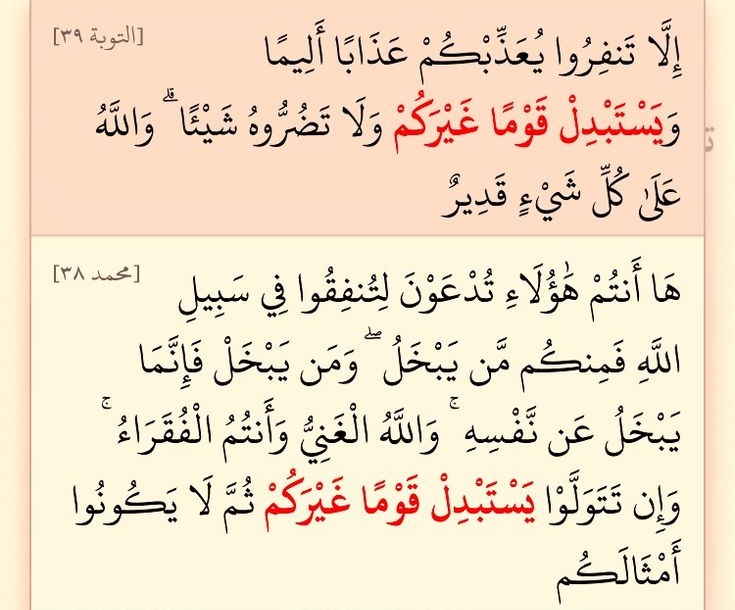 إِلَّا تَنفِرُوا يُعَذِّبْكُمْ عَذَابًا أَلِيمًا [التوبة ٣٩]
وَيَسْتَبْدِلْ قَوْمًا غَيْرَكُمْ وَلَا تَضُرُّوهُ شَيْئًا ۗ وَاللَّهُ
عَلَىٰ كُلِّ شَيْءٍ قَدِيرٌ
هَا أَنتُمْ هَٰؤُلَاءِ تُدْعَوْنَ لِتُنفِقُوا فِي سَبِيلِ [محمد ٣٨]
اللَّهِ فَمِنكُم مَّن يَبْخَلُ ۖ وَمَن يَبْخَلْ فَإِنَّمَا
يَبْخَلُ عَن نَّفْسِهِ ۚ وَاللَّهُ الْغَنِيُّ وَأَنتُمُ الْفُقَرَاءُ ۚ
وَإِن تَتَوَلَّوْا يَسْتَبْدِلْ قَوْمًا غَيْرَكُمْ ثُمَّ لَا يَكُونُوا
أَمْثَالَكُم